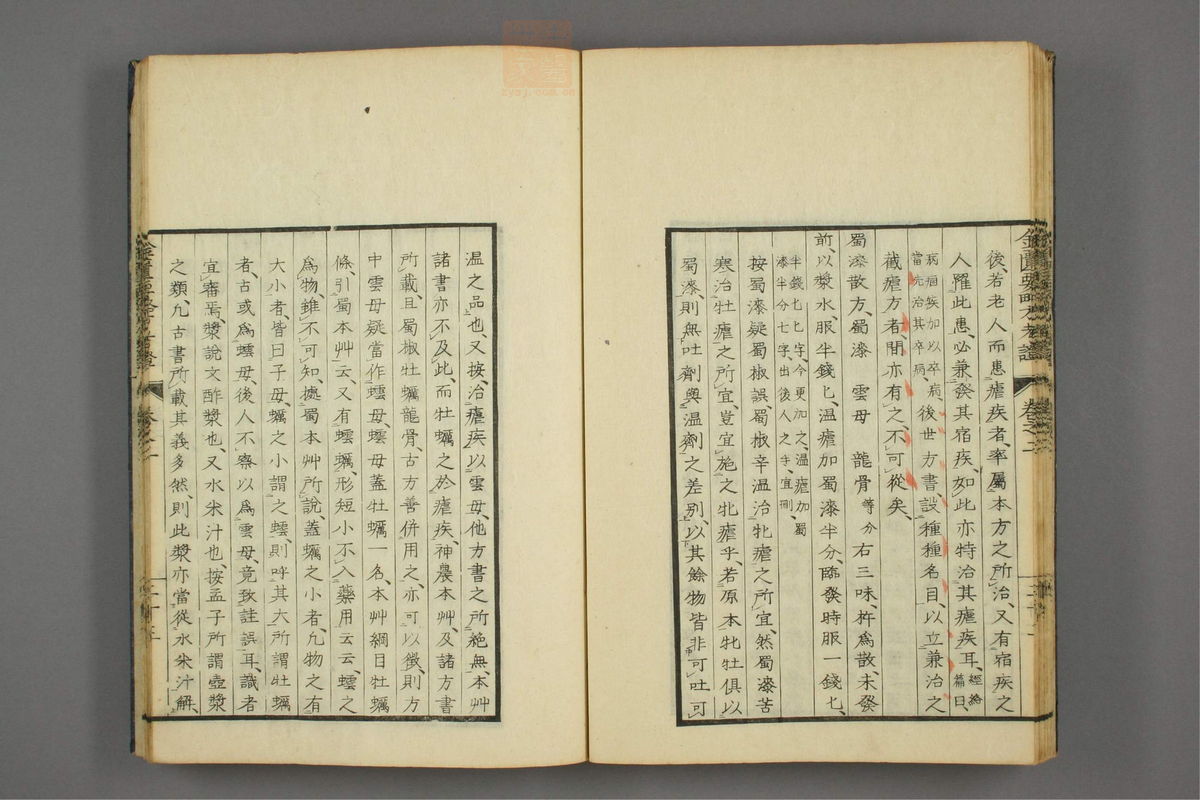 後、若老人而患瘧疾者、率屬本方之所治、又有宿疾之
人罹此患、必兼發其宿疾、如此亦特治其瘧疾耳、經絡篇曰、
病痼疾加以卒病、當先治其卒病、後世方書、設種種名目、以立兼治之
截瘧方者、間亦有之、不可從矣、
蜀漆散方、蜀漆 雲母 龍骨等分 右三味、杵爲散、未發
前、以漿水、服半錢匕、溫瘧加蜀漆半分、臨發時服一錢匕、
半錢七匕字、今更加之、溫瘧加蜀漆半分七字、出後人之手、宜刪、
按蜀漆疑蜀椒誤、蜀椒辛溫治牝瘧之所宜、然蜀漆苦
寒治牡瘧之所宜、豈宜施之牝瘧乎、若原本牝牡俱以
蜀漆、則無吐劑與溫劑之差別、以其餘物皆非可吐可
溫之品也、又按、治瘧疾以雲母、他方書之所絶無、本艸
諸書亦不及此、而牡蠣之於瘧疾、神農本艸、及諸方書
所載、且蜀椒牡蠣龍骨、古方善併用之、亦可以徵、則方
中雲母疑當作蝹母、蝹母蓋牡蠣一名、本艸綱目牡蠣
條、引蜀本艸云、又有蝹蠣、形短小不入藥用云云、蝹之
爲物雖不可知、據蜀本艸所說、蓋蠣之小者、凡物之有
大小者、皆曰子母、蠣之小謂之蝹、則呼其大所謂牡蠣
者、古或爲蝹母、後人不察以爲雲母、竟致註誤耳、識者
宜審焉、漿說文酢漿也、又水米汁也、按孟子所謂壺漿
之類、凡古書所載其義多然、則此漿亦當從水米汁解
卷之二